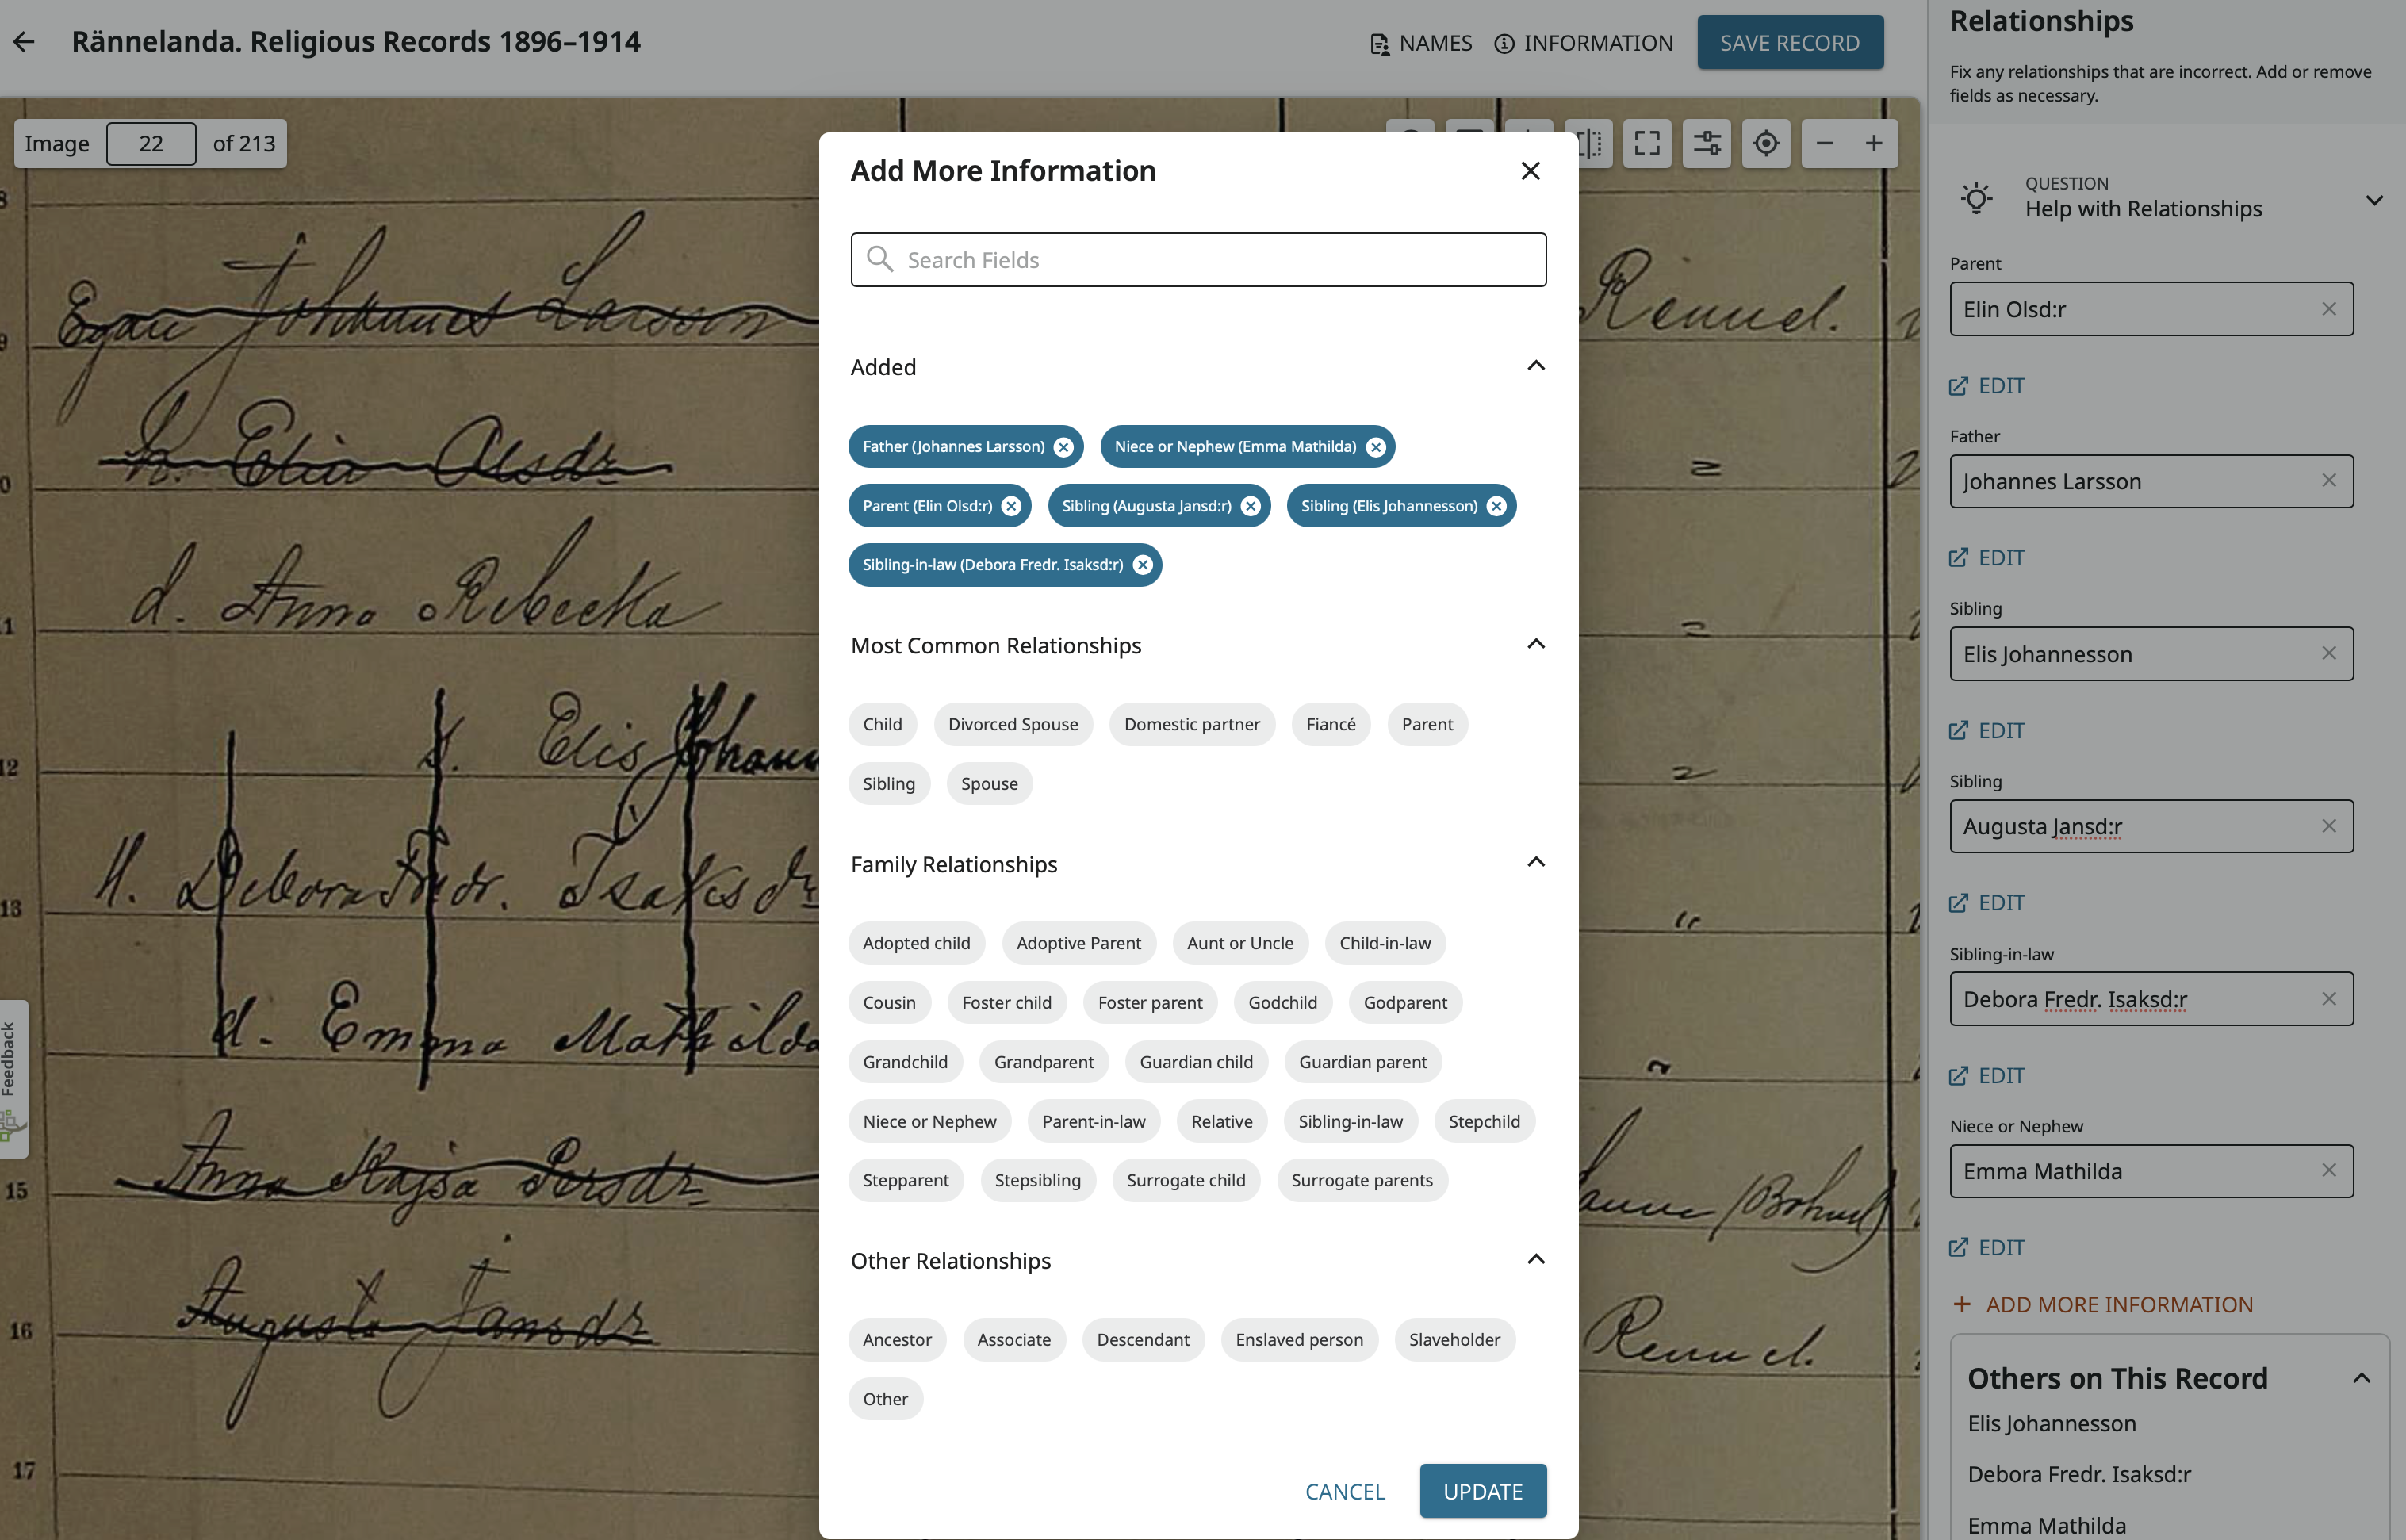 Rännelanda. Religious Records 1896–1914
NAMES
INFORMATION
SAVE RECORD
Image 22 of 213
8
Egau Johannes Larsson
Rennel.
9
h. Elin Olsdr
=
0
d. Anna Rebecka
=
1
s. Elis Johann
12
H. Debora Fredr. Isaksdr
"
13
d. Emma Mathilda
Anna Kajsa Persdr
(Bohusl)
15
Augusta Jansdr
Rennel.
16
17
Feedback
Add More Information
Search Fields
Added
Father (Johannes Larsson)
Niece or Nephew (Emma Mathilda)
Parent (Elin Olsd:r)
Sibling (Augusta Jansd:r)
Sibling (Elis Johannesson)
Sibling-in-law (Debora Fredr. Isaksd:r)
Most Common Relationships
Child
Divorced Spouse
Domestic partner
Fiancé
Parent
Sibling
Spouse
Family Relationships
Adopted child
Adoptive Parent
Aunt or Uncle
Child-in-law
Cousin
Foster child
Foster parent
Godchild
Godparent
Grandchild
Grandparent
Guardian child
Guardian parent
Niece or Nephew
Parent-in-law
Relative
Sibling-in-law
Stepchild
Stepparent
Stepsibling
Surrogate child
Surrogate parents
Other Relationships
Ancestor
Associate
Descendant
Enslaved person
Slaveholder
Other
CANCEL
UPDATE
Relationships
Fix any relationships that are incorrect. Add or remove
fields as necessary.
QUESTION
Help with Relationships
Parent
Elin Olsd:r
EDIT
Father
Johannes Larsson
EDIT
Sibling
Elis Johannesson
EDIT
Sibling
Augusta Jansd:r
EDIT
Sibling-in-law
Debora Fredr. Isaksd:r
EDIT
Niece or Nephew
Emma Mathilda
EDIT
ADD MORE INFORMATION
Others on This Record
Elis Johannesson
Debora Fredr. Isaksd:r
Emma Mathilda